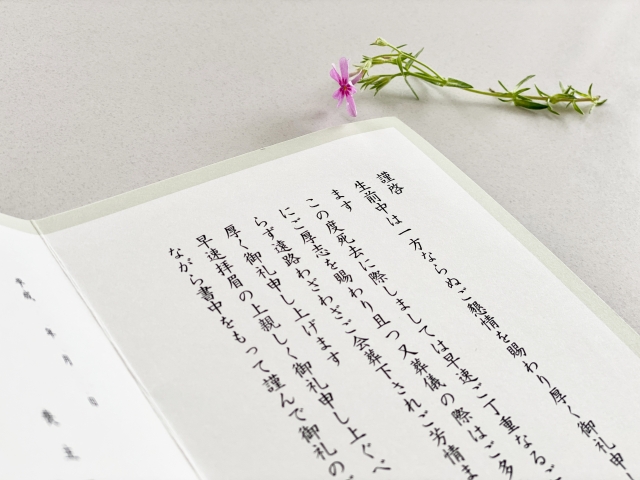 謹啓
生前中は一方ならぬご懇情を賜わり厚く御礼申し
ます
この度死去に際しましては早速ご丁重なるご
にご厚志を賜わり且つ又葬儀の際はご多
らず遠路わざわざご会葬下されご芳情ま
厚く御礼申し上げます
早速拝眉の上親しく御礼申し上ぐべ
ながら書中をもって謹んで御礼のご
年 月 日